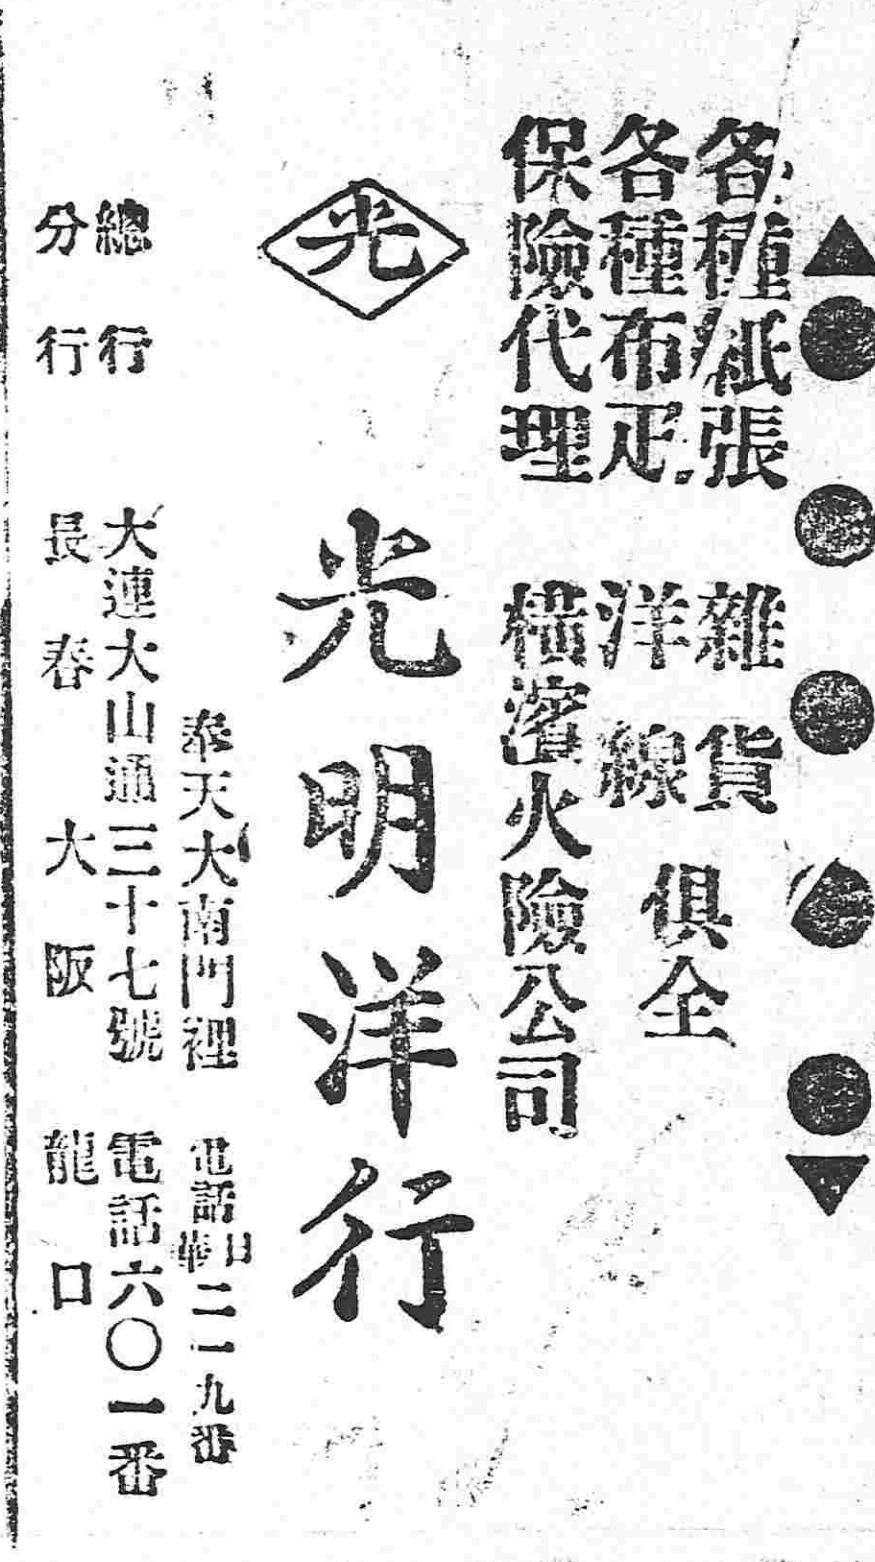 各種紙張 雜貨
各種布疋 洋線
俱全
保險代理 橫濱火險公司
光 光明洋行
奉天大南門裡 電話日華二一九番
總行 大連大山通三十七號 電話六〇一番
分行 長春 大阪 龍口